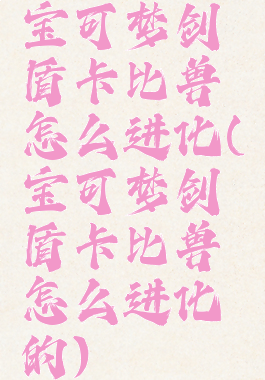 宝可梦剑
盾卡比兽
怎么进化(
宝可梦剑
盾卡比兽
怎么进化
的)